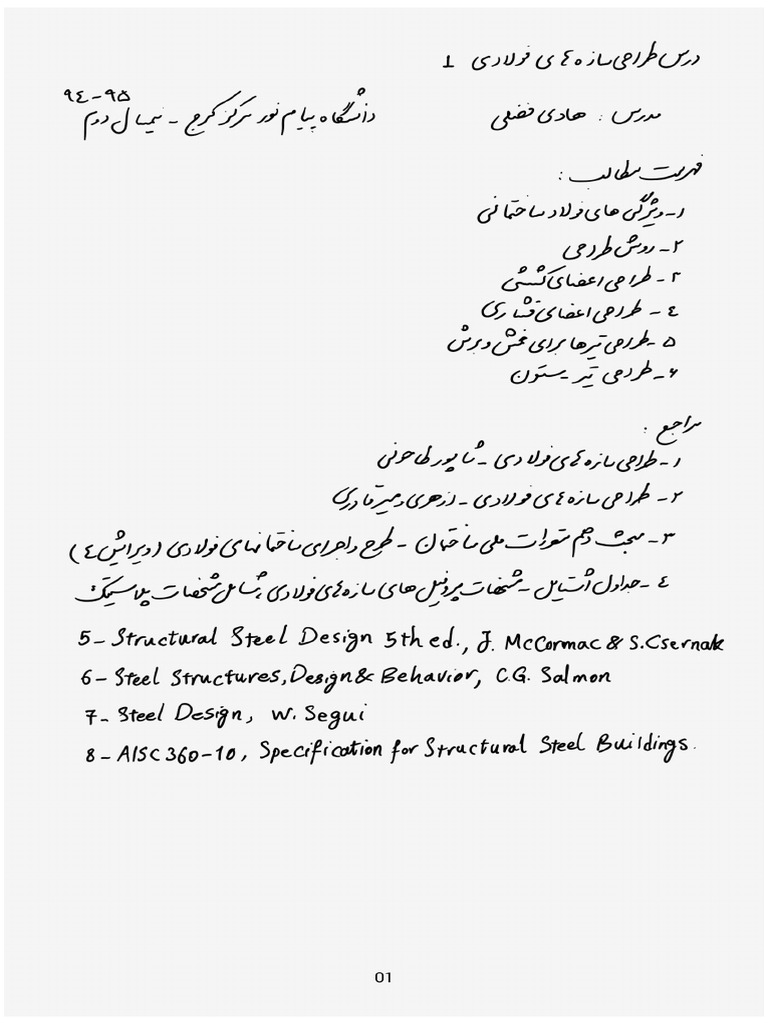 درس طراحی سازه های فولادی 1
مدرس : هادی فضلی
دانشگاه پیام نور مرکز کرج - نیمسال دوم ۹۴-۹۵
فهرست مطالب :
۱- ویژگی های فولاد ساختمانی
۲- روش طراحی
۳- طراحی اعضای کششی
۴- طراحی اعضای فشاری
۵- طراحی تیرها برای خمش و برش
۶- طراحی تیر-ستون
مراجع :
۱- طراحی سازه های فولادی - شاپور طاحونی
۲- طراحی سازه های فولادی - ازهری و میرقادری
۳- مبحث دهم مقررات ملی ساختمان - طرح و اجرای ساختمانهای فولادی (ویرایش ۴)
۴- جداول اشتایل - مشخصات پروفیل های سازه های فولادی، شامل مشخصات پلاستیک
5- Structural Steel Design 5th ed., J. McCormac & S. Csernak
6- Steel Structures, Design & Behavior, C.G. Salmon
7- Steel Design, W. Segui
8- AISC 360-10, Specification for Structural Steel Buildings.
01